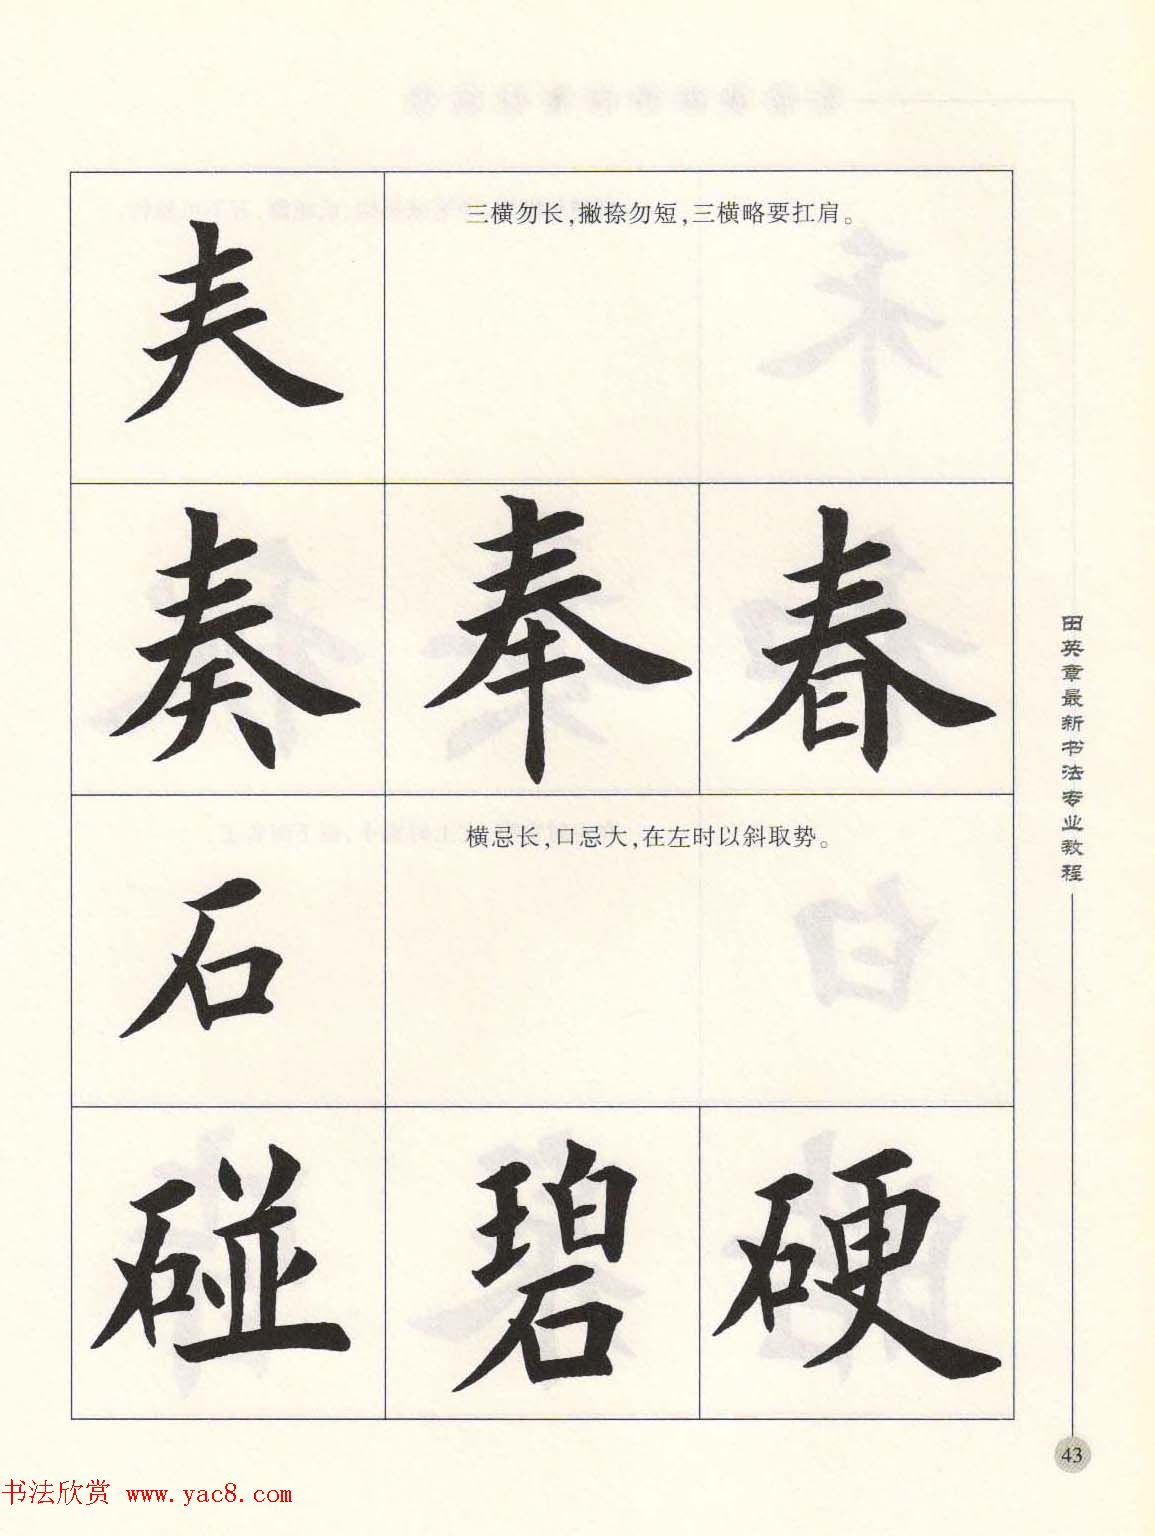 𡗗
三横勿长，撇捺勿短，三横略要扛肩。
奏 奉 春
石
横忌长，口忌大，在左时以斜取势。
碰 碧 硬
田英章最新书法专业教程
43
书法欣赏 www.yac8.com